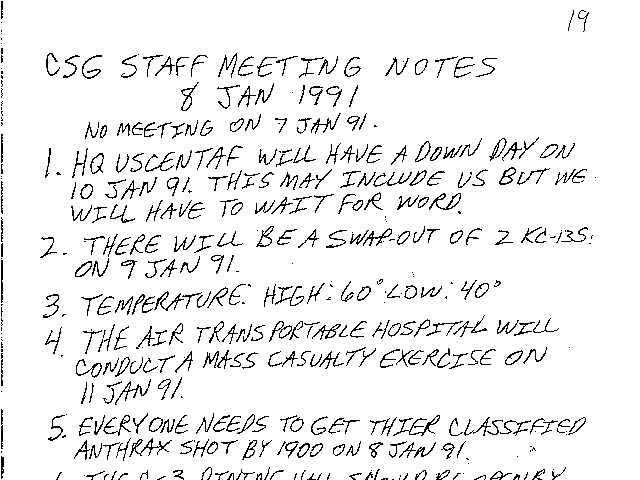 19
CSG STAFF MEETING NOTES
8 JAN 1991
NO MEETING ON 7 JAN 91.
1. HQ USCENTAF WILL HAVE A DOWN DAY ON
10 JAN 91. THIS MAY INCLUDE US BUT WE
WILL HAVE TO WAIT FOR WORD.
2. THERE WILL BE A SWAP-OUT OF 2 KC-135s
ON 9 JAN 91.
3. TEMPERATURE: HIGH: 60° LOW: 40°
4. THE AIR TRANSPORTABLE HOSPITAL WILL
CONDUCT A MASS CASUALTY EXERCISE ON
11 JAN 91.
5. EVERYONE NEEDS TO GET THIER CLASSIFIED
ANTHRAX SHOT BY 1900 ON 8 JAN 91.
DINING HALL SHOULD BE